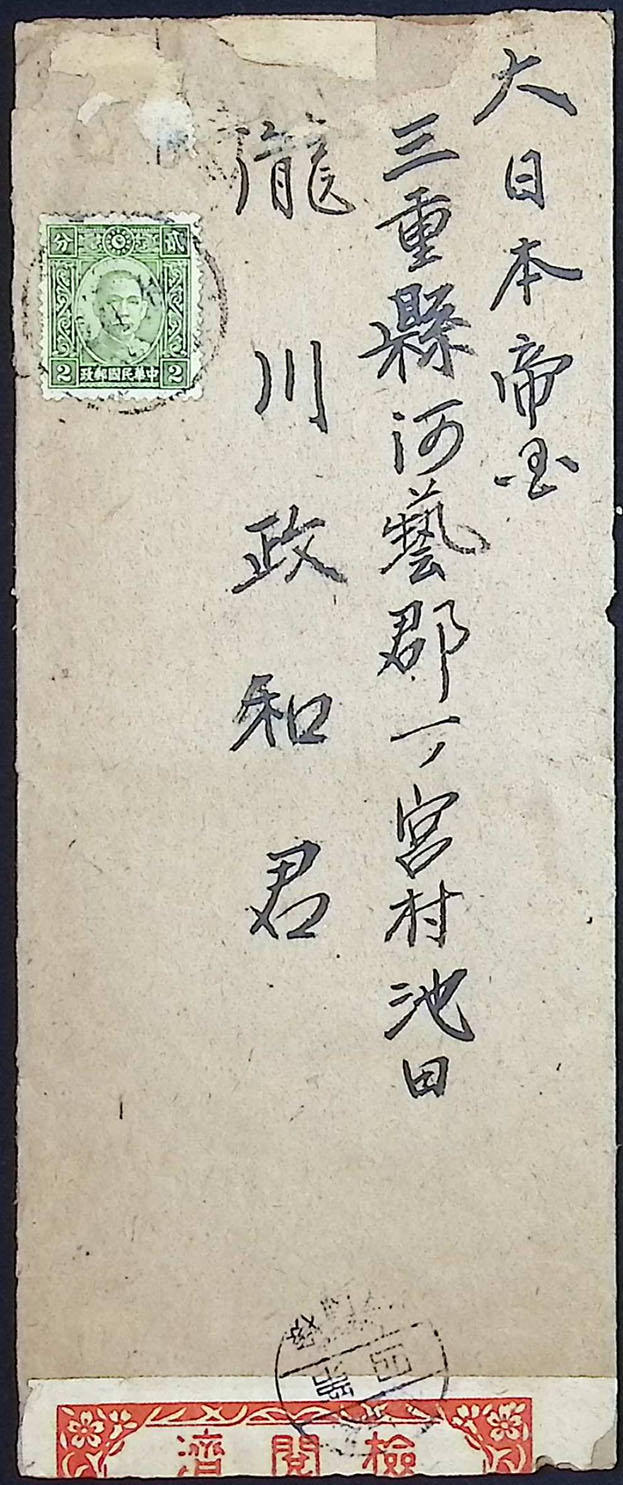 大日本帝国
三重縣河藝郡一ノ宮村池田
瀧川政和君
分 貳
2 政郵國民華中 2
濟閱檢